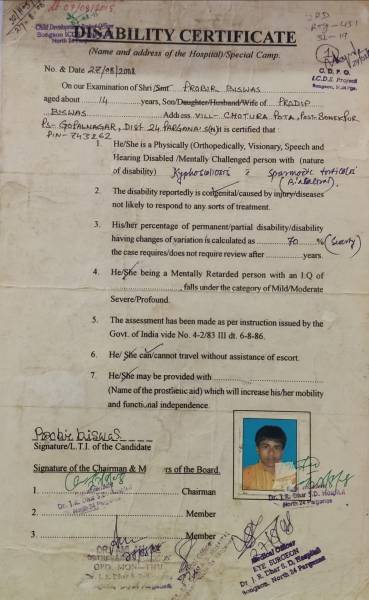 Child Development Project Officer
Bongaon I.C.D.S.
North 24 Parganas
DISABILITY CERTIFICATE
(Name and address of the Hospital)/Special Camp.
C. D. P. O.
I.C.D.S. Project
Bongaon, N. 24 Pgs.
No. & Date 27/08/2008
On our Examination of Shri/Smt PROBIR BISWAS
aged about 14 years, Son/Daughter/Husband/Wife of PRODIP
BISWAS Address VILL- CHOTURA POTA, Post-
PS- GOPALNAGAR, DIST 24 PARGONAS(N) it is certified that :
PIN- 743262
He/She is a Physically (Orthopedically, Visionary, Speech and
1. Hearing Disabled /Mentally Challenged person with (nature
of disability) Kyphoscoliosis
(Bilateral).
2. The disability reportedly is congenital/caused by injury/diseases
not likely to respond to any sorts of treatment.
3. His/her percentage of permanent/partial disability/disability
having changes of variation is calculated as 70 % (Seventy)
the case requires/does not require review after years.
4. He/She being a Mentally Retarded person with an I.Q of
falls under the category of Mild/Moderate
Severe/Profound.
5. The assessment has been made as per instruction issued by the
Govt. of India vide No. 4-2/83 III dt. 6-8-86.
6. He/ She can/cannot travel without assistance of escort.
7. He/She may be provided with
(Name of the prostheic aid) which will increase his/her mobility
and functional independence.
Probir biswas
Signature/L.T.I. of the Candidate
Signature of the Chairman & M rs of the Board.
1. Chairman
Dr. J. R. Dhar S. D. Hospital
North 24 Parganas
2. Member
3. Member
OPD. MON-THU
Dr. J. R. Dhar S.D. Hospital
North 24 Parganas
Medical Officer
EYE SURGEON
Dr. J. R. Dhar S. D. Hospital
Bongaon, North 24 Parganas